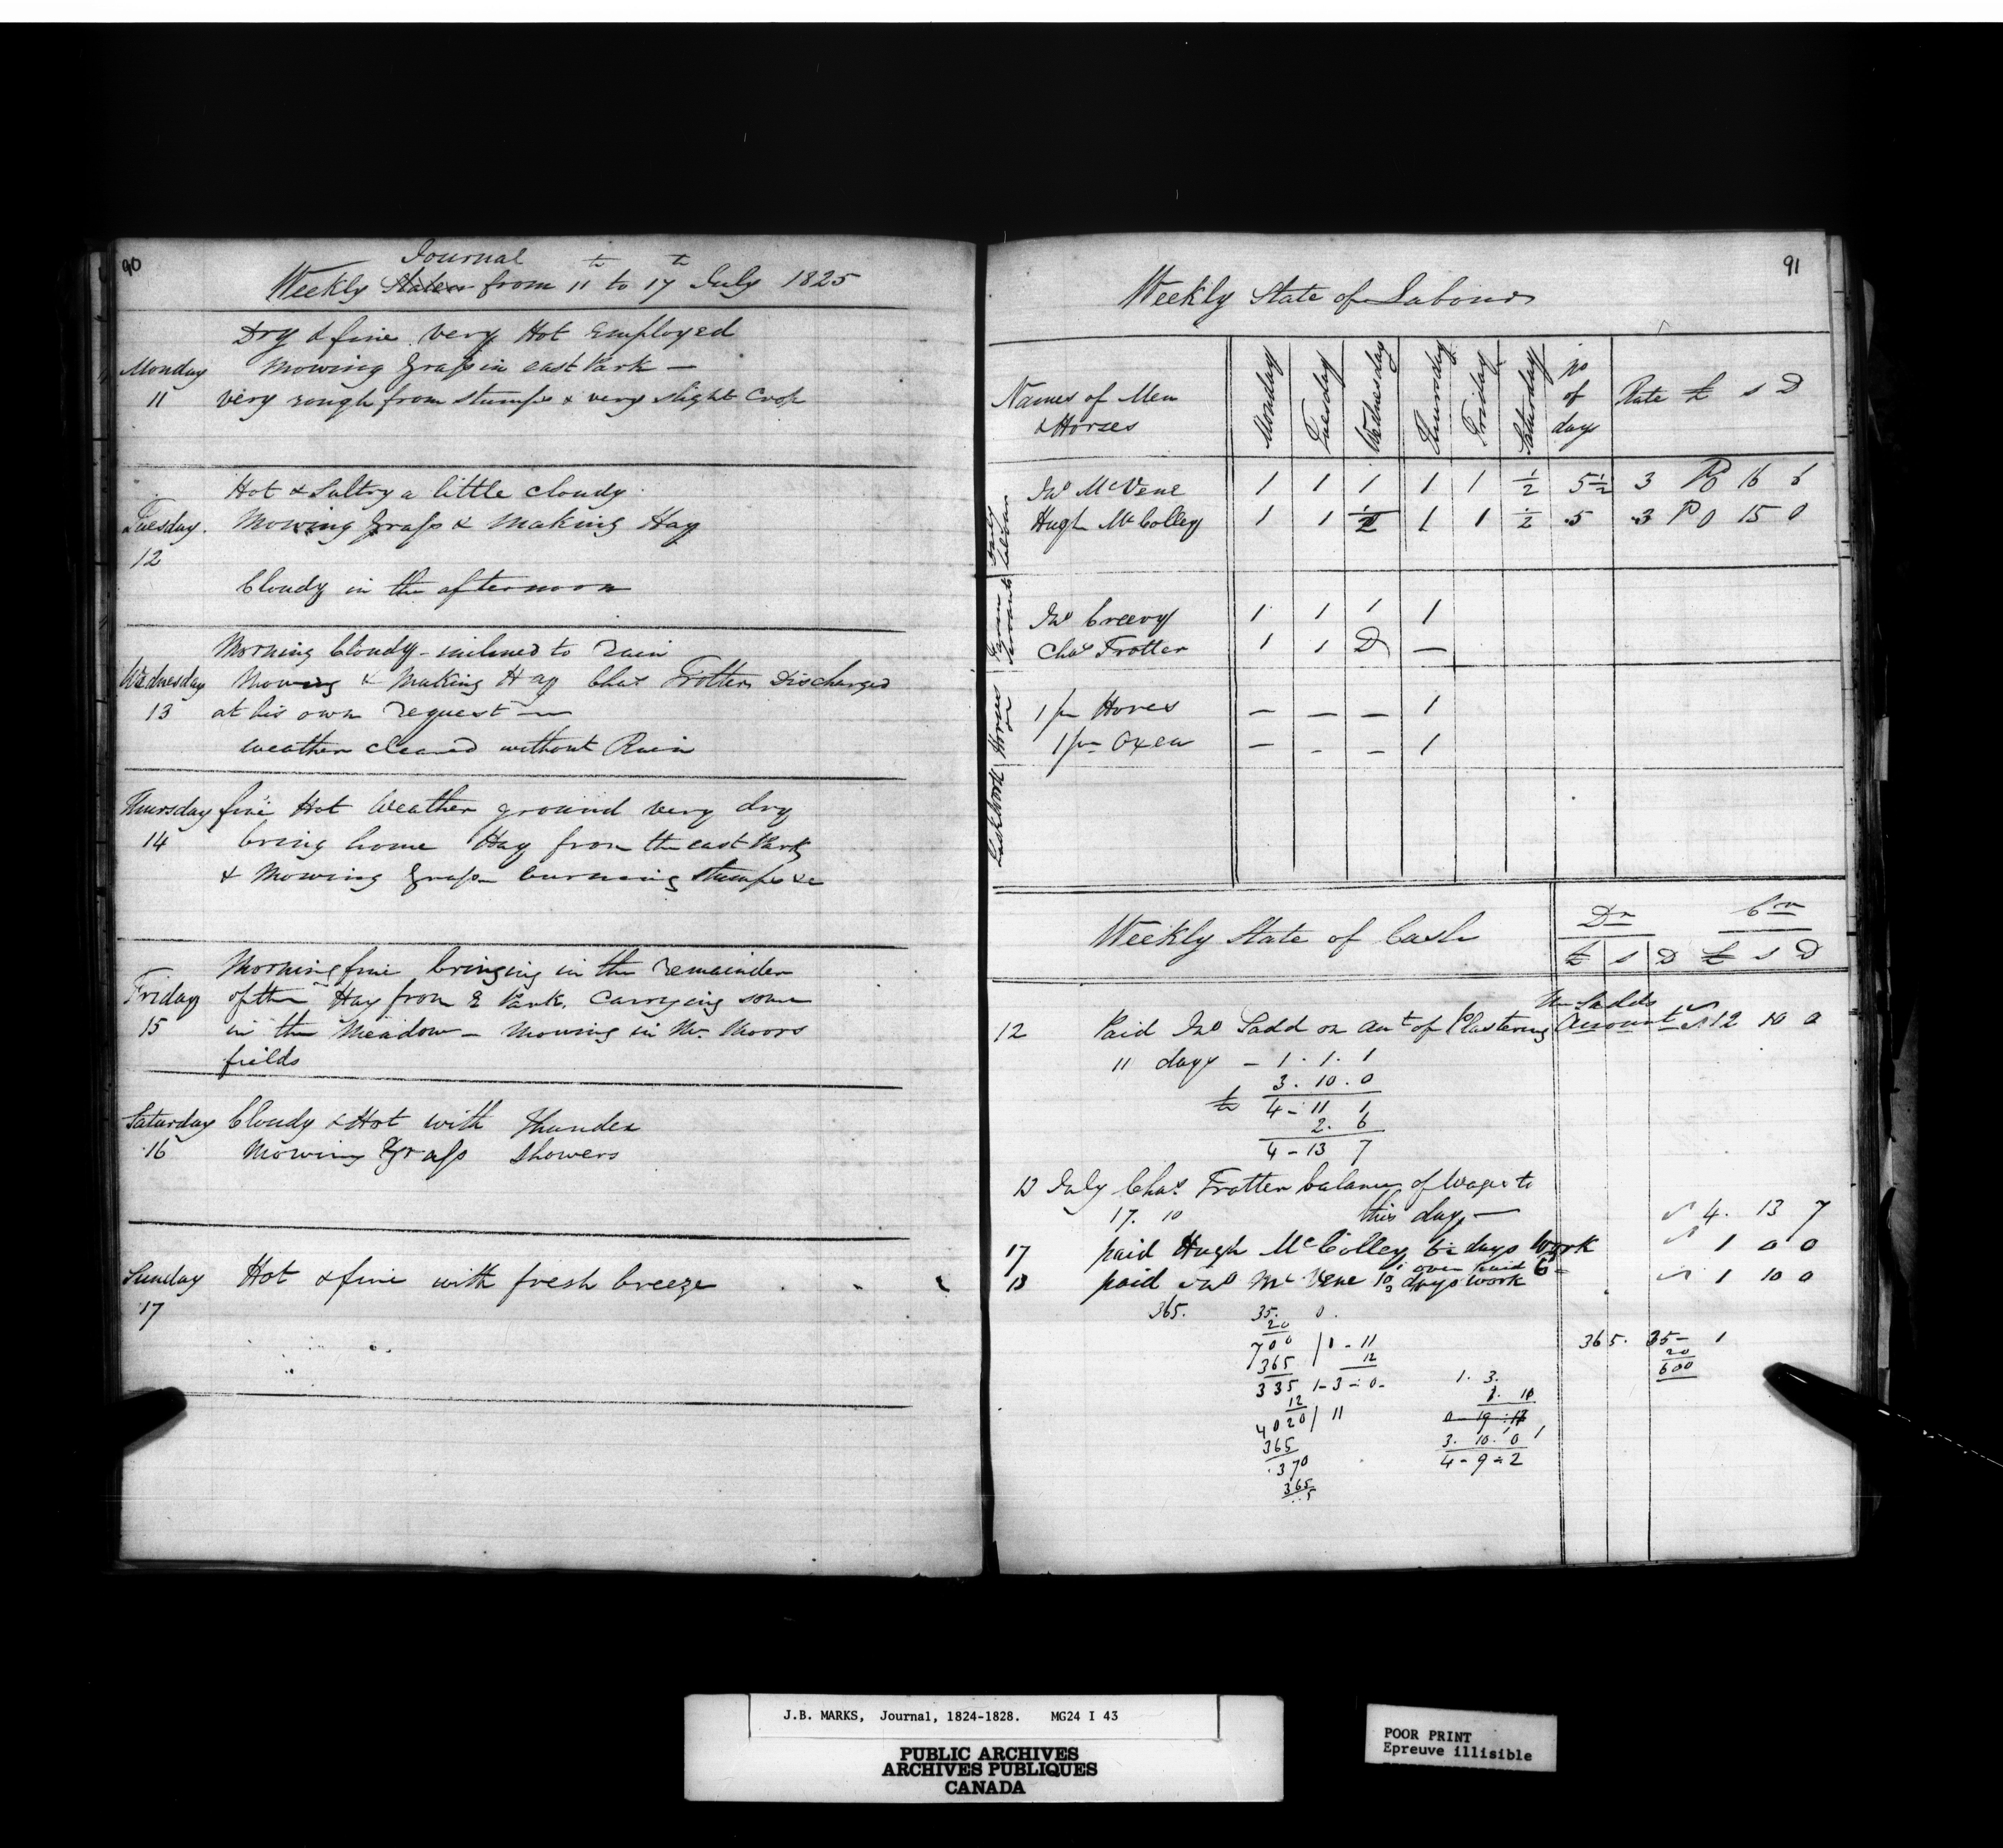 90
Journal
Weekly States from 11th to 17th July 1825
Dry & fine very Hot Employed
Monday Mowing Grass in east Park —
11 very rough from stumps & very slight Crop
Hot & Sultry a little cloudy
Tuesday. Mowing Grass & Making Hay
12
Cloudy in the afternoon
Morning Cloudy - inclined to rain
Wednesday Mowing & Making Hay Chas Trotter Discharged
13 at his own request —
weather cleared without Rain
Thursday fine Hot Weather ground very dry
14 bring home Hay from the east Park
& Mowing Grass burning stumps &c
Morning fine bringing in the remainder
Friday of the Hay from E Park. Carrying some
15 in the Meadow - Mowing in Mr. Moors
fields
Saturday Cloudy & Hot with Thunder
16 Mowing Grass Showers
Sunday Hot & fine with fresh breeze
17
91
Weekly State of Labour
Names of Men & Horses Monday Tuesday Wednesday Thursday Friday Saturday No of days Rate £ s D
Jno McVene 1 1 1 1 1 ½ 5½ 3 P 0 16 6
Hugh McColley 1 1 ½ 1 1 ½ 5 3 P 0 15 0
Jno Creevy 1 1 1 1
Chas Trotter 1 1 D —
1 pr Horses — — — 1
1 pr Oxen — - — 1
Weekly State of Cash Dr Cr
£ s D £ s D
Mr Ladds
12 Paid Jno Ladd on Aut of Plastering Amount 12 10 0
11 days - 1. 1. 1
3. 10. 0
4 - 11 1
2. 6
4 - 13 7
13 July Chas Trotter balance of Wages to
17. 10 this day — 4. 13 7
17 paid Hugh McColley 6½ days Work 1 0 0
over paid 6
13 paid Jno McVene 10 days work 1 10 0
365. 35. 0.
20
700 / 1 - 11
365 12
335 1 - 3 - 0 -
12
4020 / 11
365
370
365
5
1. 3.
1. 10
0 - 19 - 17
3. 10. 0 1
4 - 9 - 2
365. 35 - 1
20
600
J.B. MARKS, Journal, 1824-1828. MG24 I 43
PUBLIC ARCHIVES
ARCHIVES PUBLIQUES
CANADA
POOR PRINT
Epreuve illisible